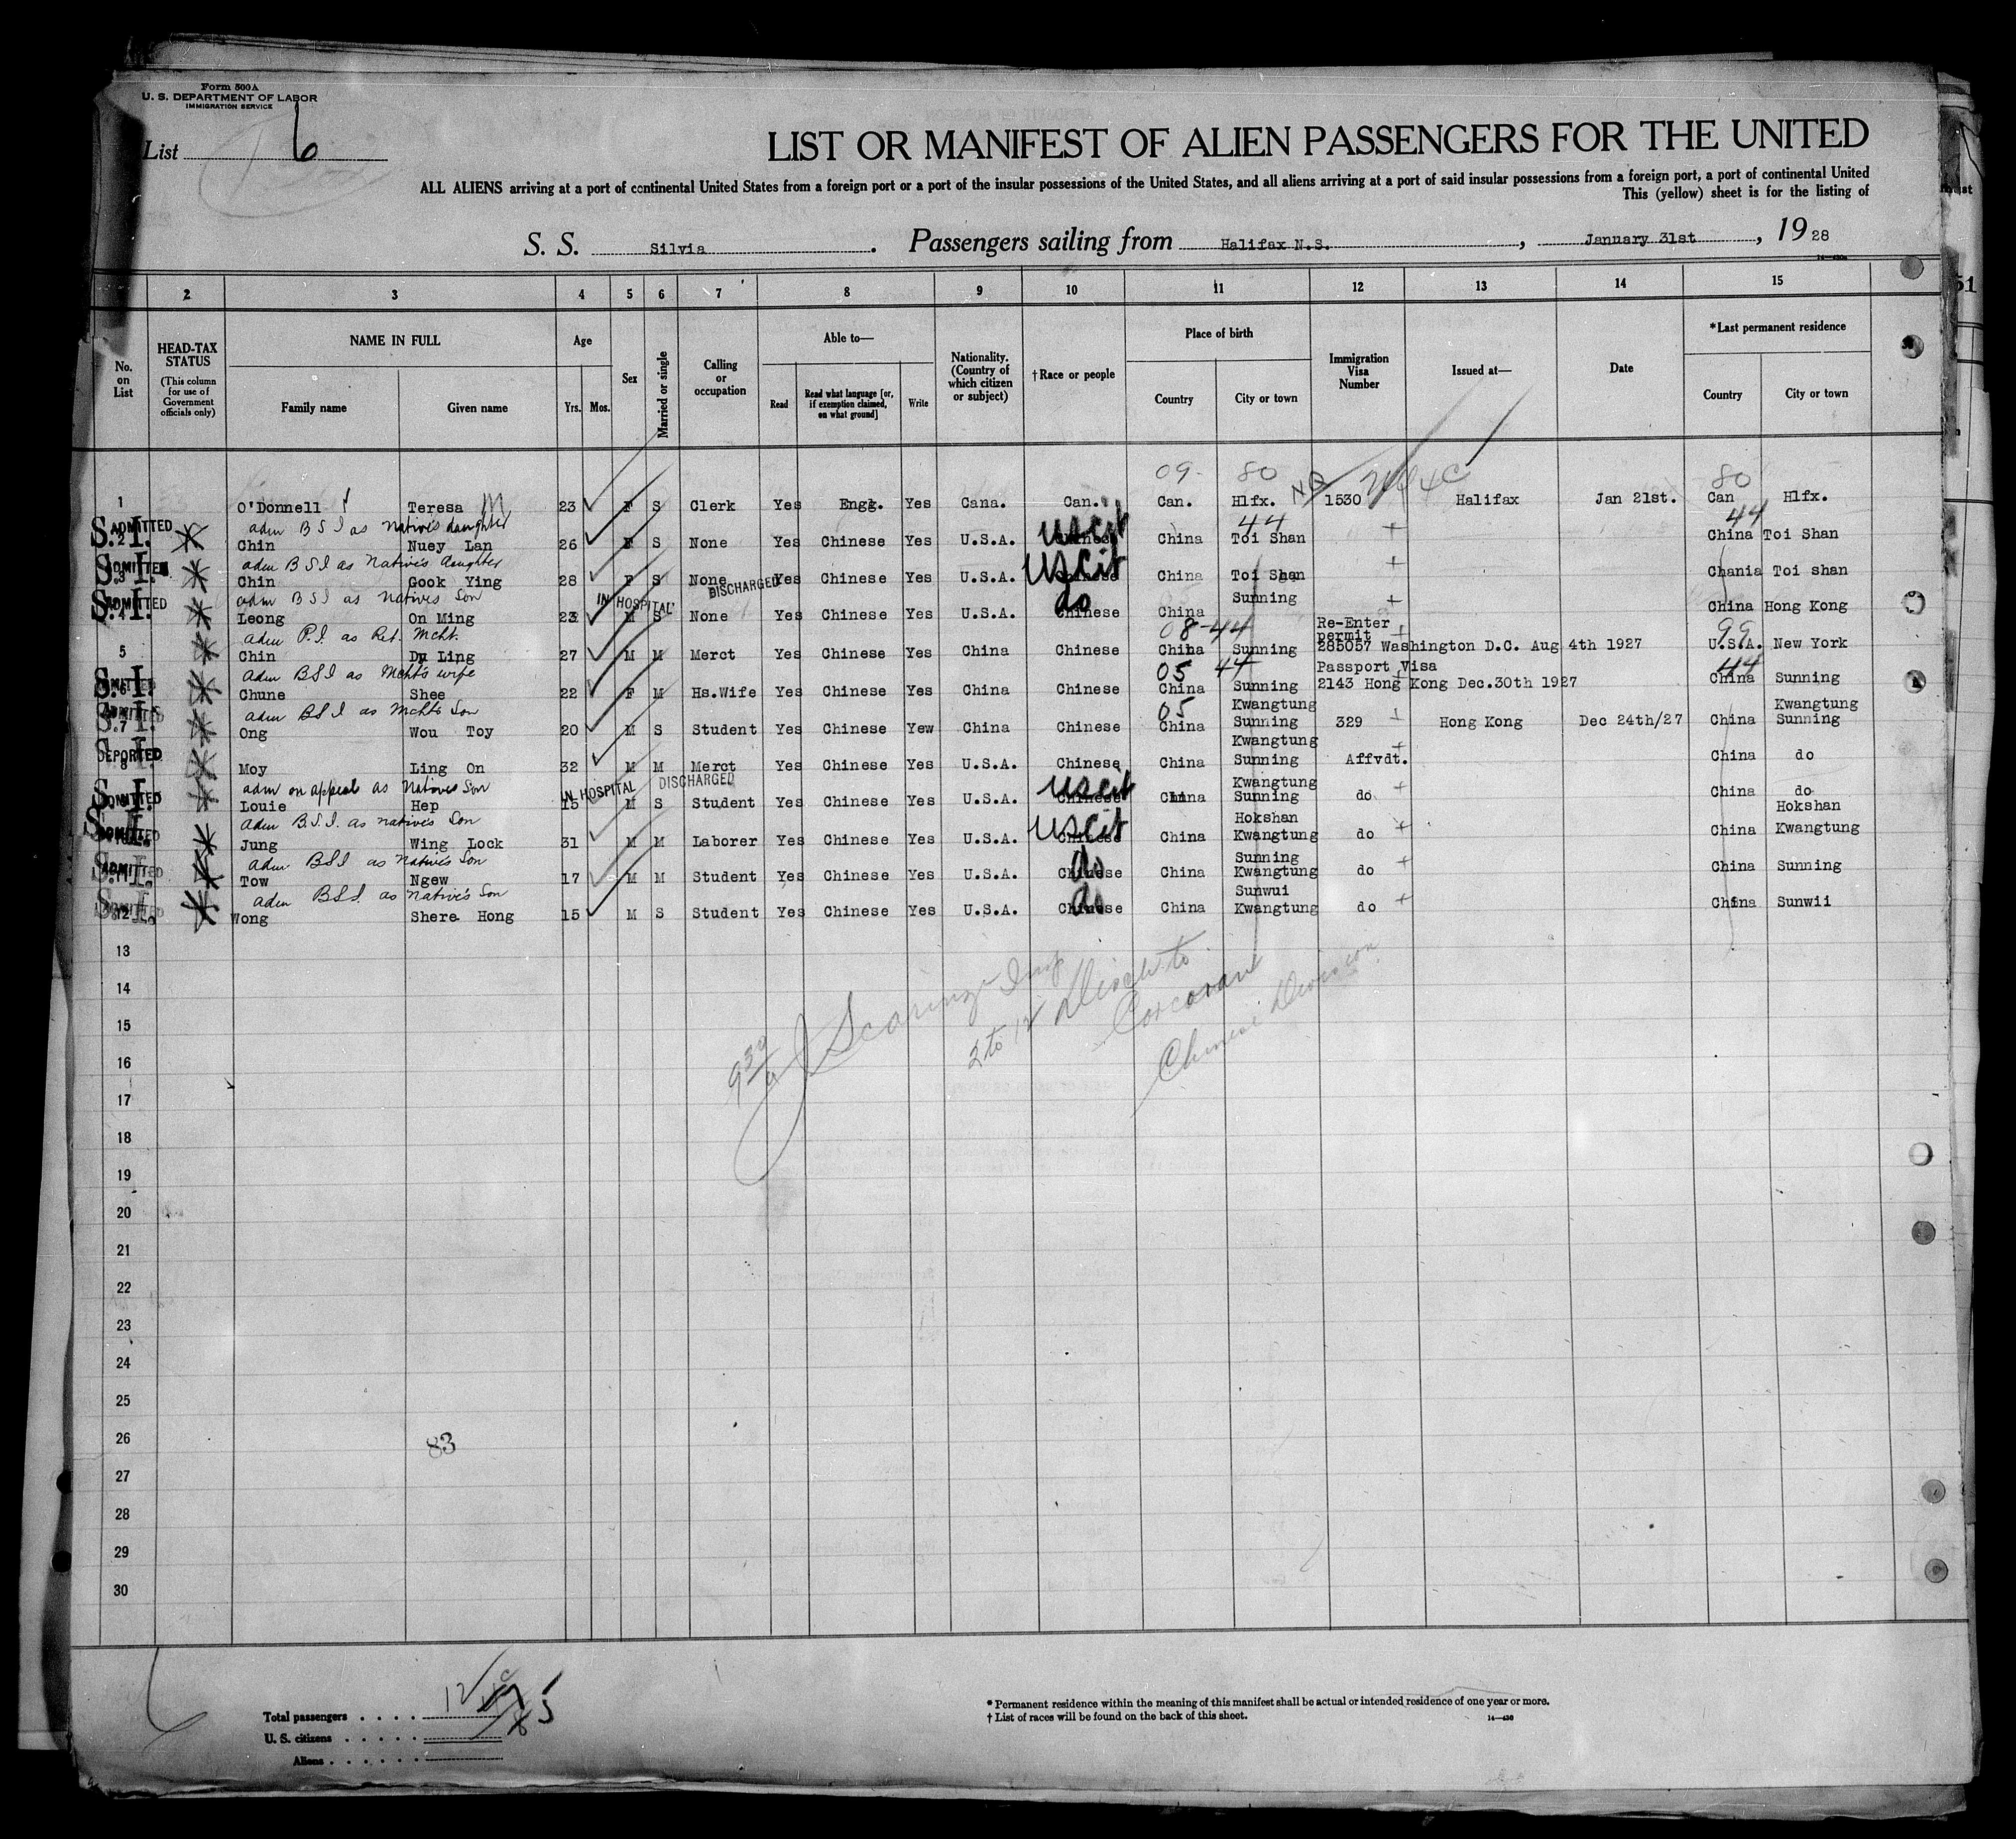 Form 500A
U. S. DEPARTMENT OF LABOR
IMMIGRATION SERVICE
List 6
LIST OR MANIFEST OF ALIEN PASSENGERS FOR THE UNITED
ALL ALIENS arriving at a port of continental United States from a foreign port or a port of the insular possessions of the United States, and all aliens arriving at a port of said insular possessions from a foreign port, a port of continental United
This (yellow) sheet is for the listing of
S. S. Silvia. Passengers sailing from Halifax N.S., January 31st, 1928
2 3 4 5 6 7 8 9 10 11 12 13 14 15
No. on List
HEAD-TAX STATUS
(This column for use of Government officials only)
NAME IN FULL
Family name Given name
Age
Yrs. Mos.
Sex
Married or single
Calling or occupation
Able to—
Read
Read what language [or, if exemption claimed, on what ground]
Write
Nationality. (Country of which citizen or subject)
†Race or people
Place of birth
Country City or town
Immigration Visa Number
Issued at—
Date
*Last permanent residence
Country City or town
09- 80 80
1 O'Donnell Teresa M 23 F S Clerk Yes Engl. Yes Cana. Can. Can. Hlfx. 1530 Halifax Jan 21st. Can Hlfx.
S.I. ADMITTED adm BSI as native's daughter uscit 44 44
2 Chin Nuey Lan 26 F S None Yes Chinese Yes U.S.A. Chinese China Toi Shan China Toi Shan
S.I. ADMITTED adm BSI as Native's daughter uscit
3 Chin Gook Ying 28 F S None Yes Chinese Yes U.S.A. Chinese China Toi Shan Chania Toi shan
S.I. ADMITTED adm BSI as natives Son IN HOSPITAL DISCHARGED do Sunning
4 Leong On Ming 23 M S None Yes Chinese Yes U.S.A. Chinese China China Hong Kong
adm P.I. as Ret. Mcht. 08-44 Re-Enter permit 99
5 Chin Dy Ling 27 M M Merct Yes Chinese Yes China Chinese China Sunning 285057 Washington D.C. Aug 4th 1927 U.S.A. New York
S.I. Adm BSI as Mcht's wife 05 44 Passport Visa 44
6 Chune Shee 22 F M Hs.Wife Yes Chinese Yes China Chinese China Sunning 2143 Hong Kong Dec.30th 1927 China Sunning
S.I. adm BSI as Mchts Son 05 Kwangtung Kwangtung
7 Ong Wou Toy 20 M S Student Yes Chinese Yew China Chinese China Sunning 329 Hong Kong Dec 24th/27 China Sunning
S.I. DEPORTED Kwangtung
8 Moy Ling On 32 M M Merct Yes Chinese Yes U.S.A. Chinese China Sunning Affvdt. China do
S.I. ADMITTED adm on appeal as Natives Son IN HOSPITAL DISCHARGED uscit Kwangtung
Louie Hep 15 M S Student Yes Chinese Yes U.S.A. Chinese China Sunning do China do
S.I. adm B.S.I. as native's Son uscit Hokshan Hokshan
Jung Wing Lock 31 M M Laborer Yes Chinese Yes U.S.A. Chinese China Kwangtung do China Kwangtung
ADMITTED adm BSI as Native's Son do Sunning
Tow Ngew 17 M M Student Yes Chinese Yes U.S.A. Chinese China Kwangtung do China Sunning
S.I. adm BSI as Native's Son do Sunwui
12 Wong Shere Hong 15 M S Student Yes Chinese Yes U.S.A. Chinese China Kwangtung do China Sunwii
13
14
15
16
17
18
19
20
21
22
23
24
25
26
27
28
29
30
2 to 12 Disch to
Corcoran
Chinese Division
83
Total passengers 12
U. S. citizens
Aliens
* Permanent residence within the meaning of this manifest shall be actual or intended residence of one year or more.
† List of races will be found on the back of this sheet.